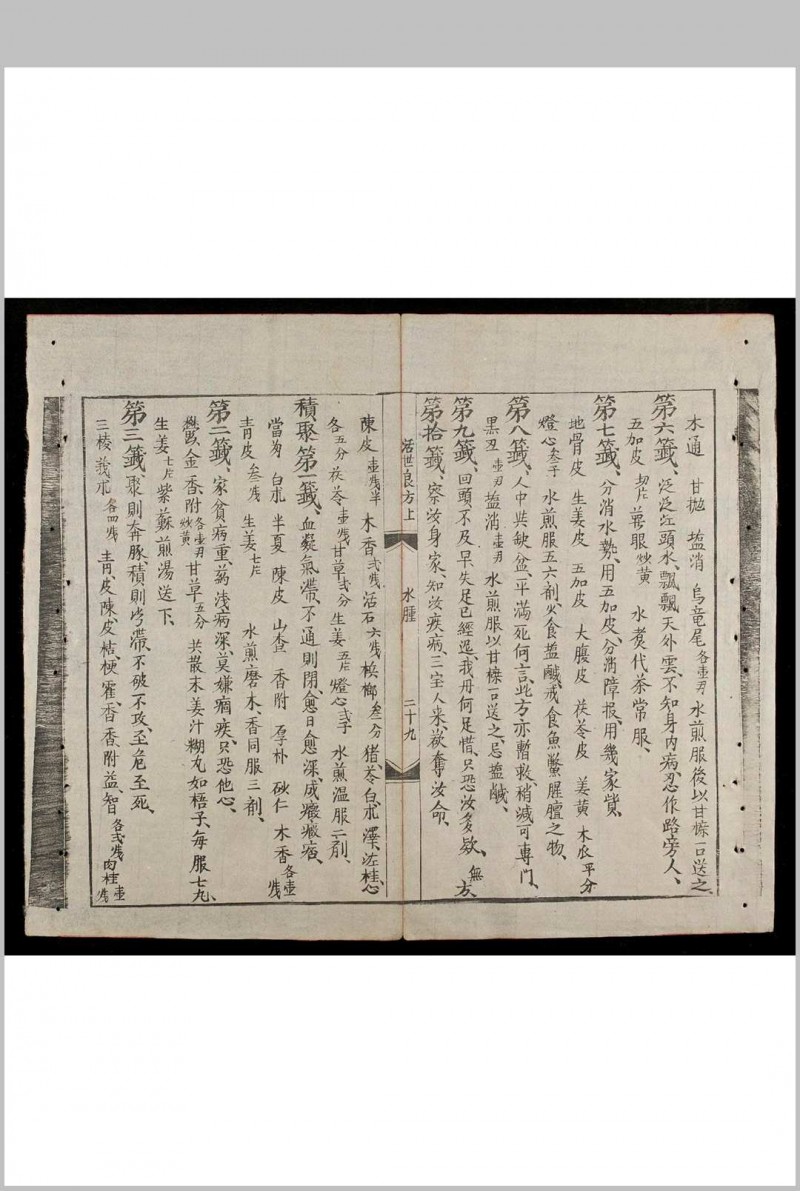 木通 甘拋 塩消 烏竜尾各壺刄水煎服後以甘檪一口送之
第六籤、泛泛江頭水、飄飄天外雲、不知身内病、忍作路旁人、
五加皮 萬眼炒黃 水煮代茶常服、
第七籤、分消水勢、用五加皮、分消障报、用幾家貲、
地骨皮 生姜皮 五加皮 大腹皮 茯苓皮 姜黃 木瓜平分
燈心叁子 水煎服五六剤、火食塩鹹、戒食魚鱉腥膻之物、
第八籤、人中共缺盆、平滿死何言、此方亦暫救、稍減可專門、
黑丑壺刄塩消壺刄 水煎服以甘檪一口送之忌塩鹹、
第九籤、回頭不及早失足已經遲、我丹何足惜、只恐汝多欵、無方、
第拾籤、察汝身家、知汝疾病、三宝人来、欲奪汝命、
活世良方上
水腫
二十九
陳皮壺戋半 木香弍戋活石六戋檳榔叁分猪苓白朮澤泻桂心
各五分茯苓壺戋甘草弍分生姜五片燈心弍子 水煎温服二剤、
積聚第一籤、血凝氣滯、不通則閉、愈日愈深、成癥癥痼、
當为 白朮 半夏 陳皮 山查 香附 厚朴 砂仁 木香各壺戋
青皮叁戋 生姜七片 水煎磨木香同服三剤、
第二籤、家貧病重、药浅病深、莫嫌痼疾、只恐他心、
欝金香附各壺刄炒黃甘草五分 共散末姜汁糊丸如梧子、每服七丸、
生姜七片紫蘇煎湯送下、
第三籤、聚則奔豚、積則氵滯、不破不攻、至危至死、
三棱 莪朮各四戋青皮陳皮桔梗藿香香附益智各弍戋肉桂壺戋